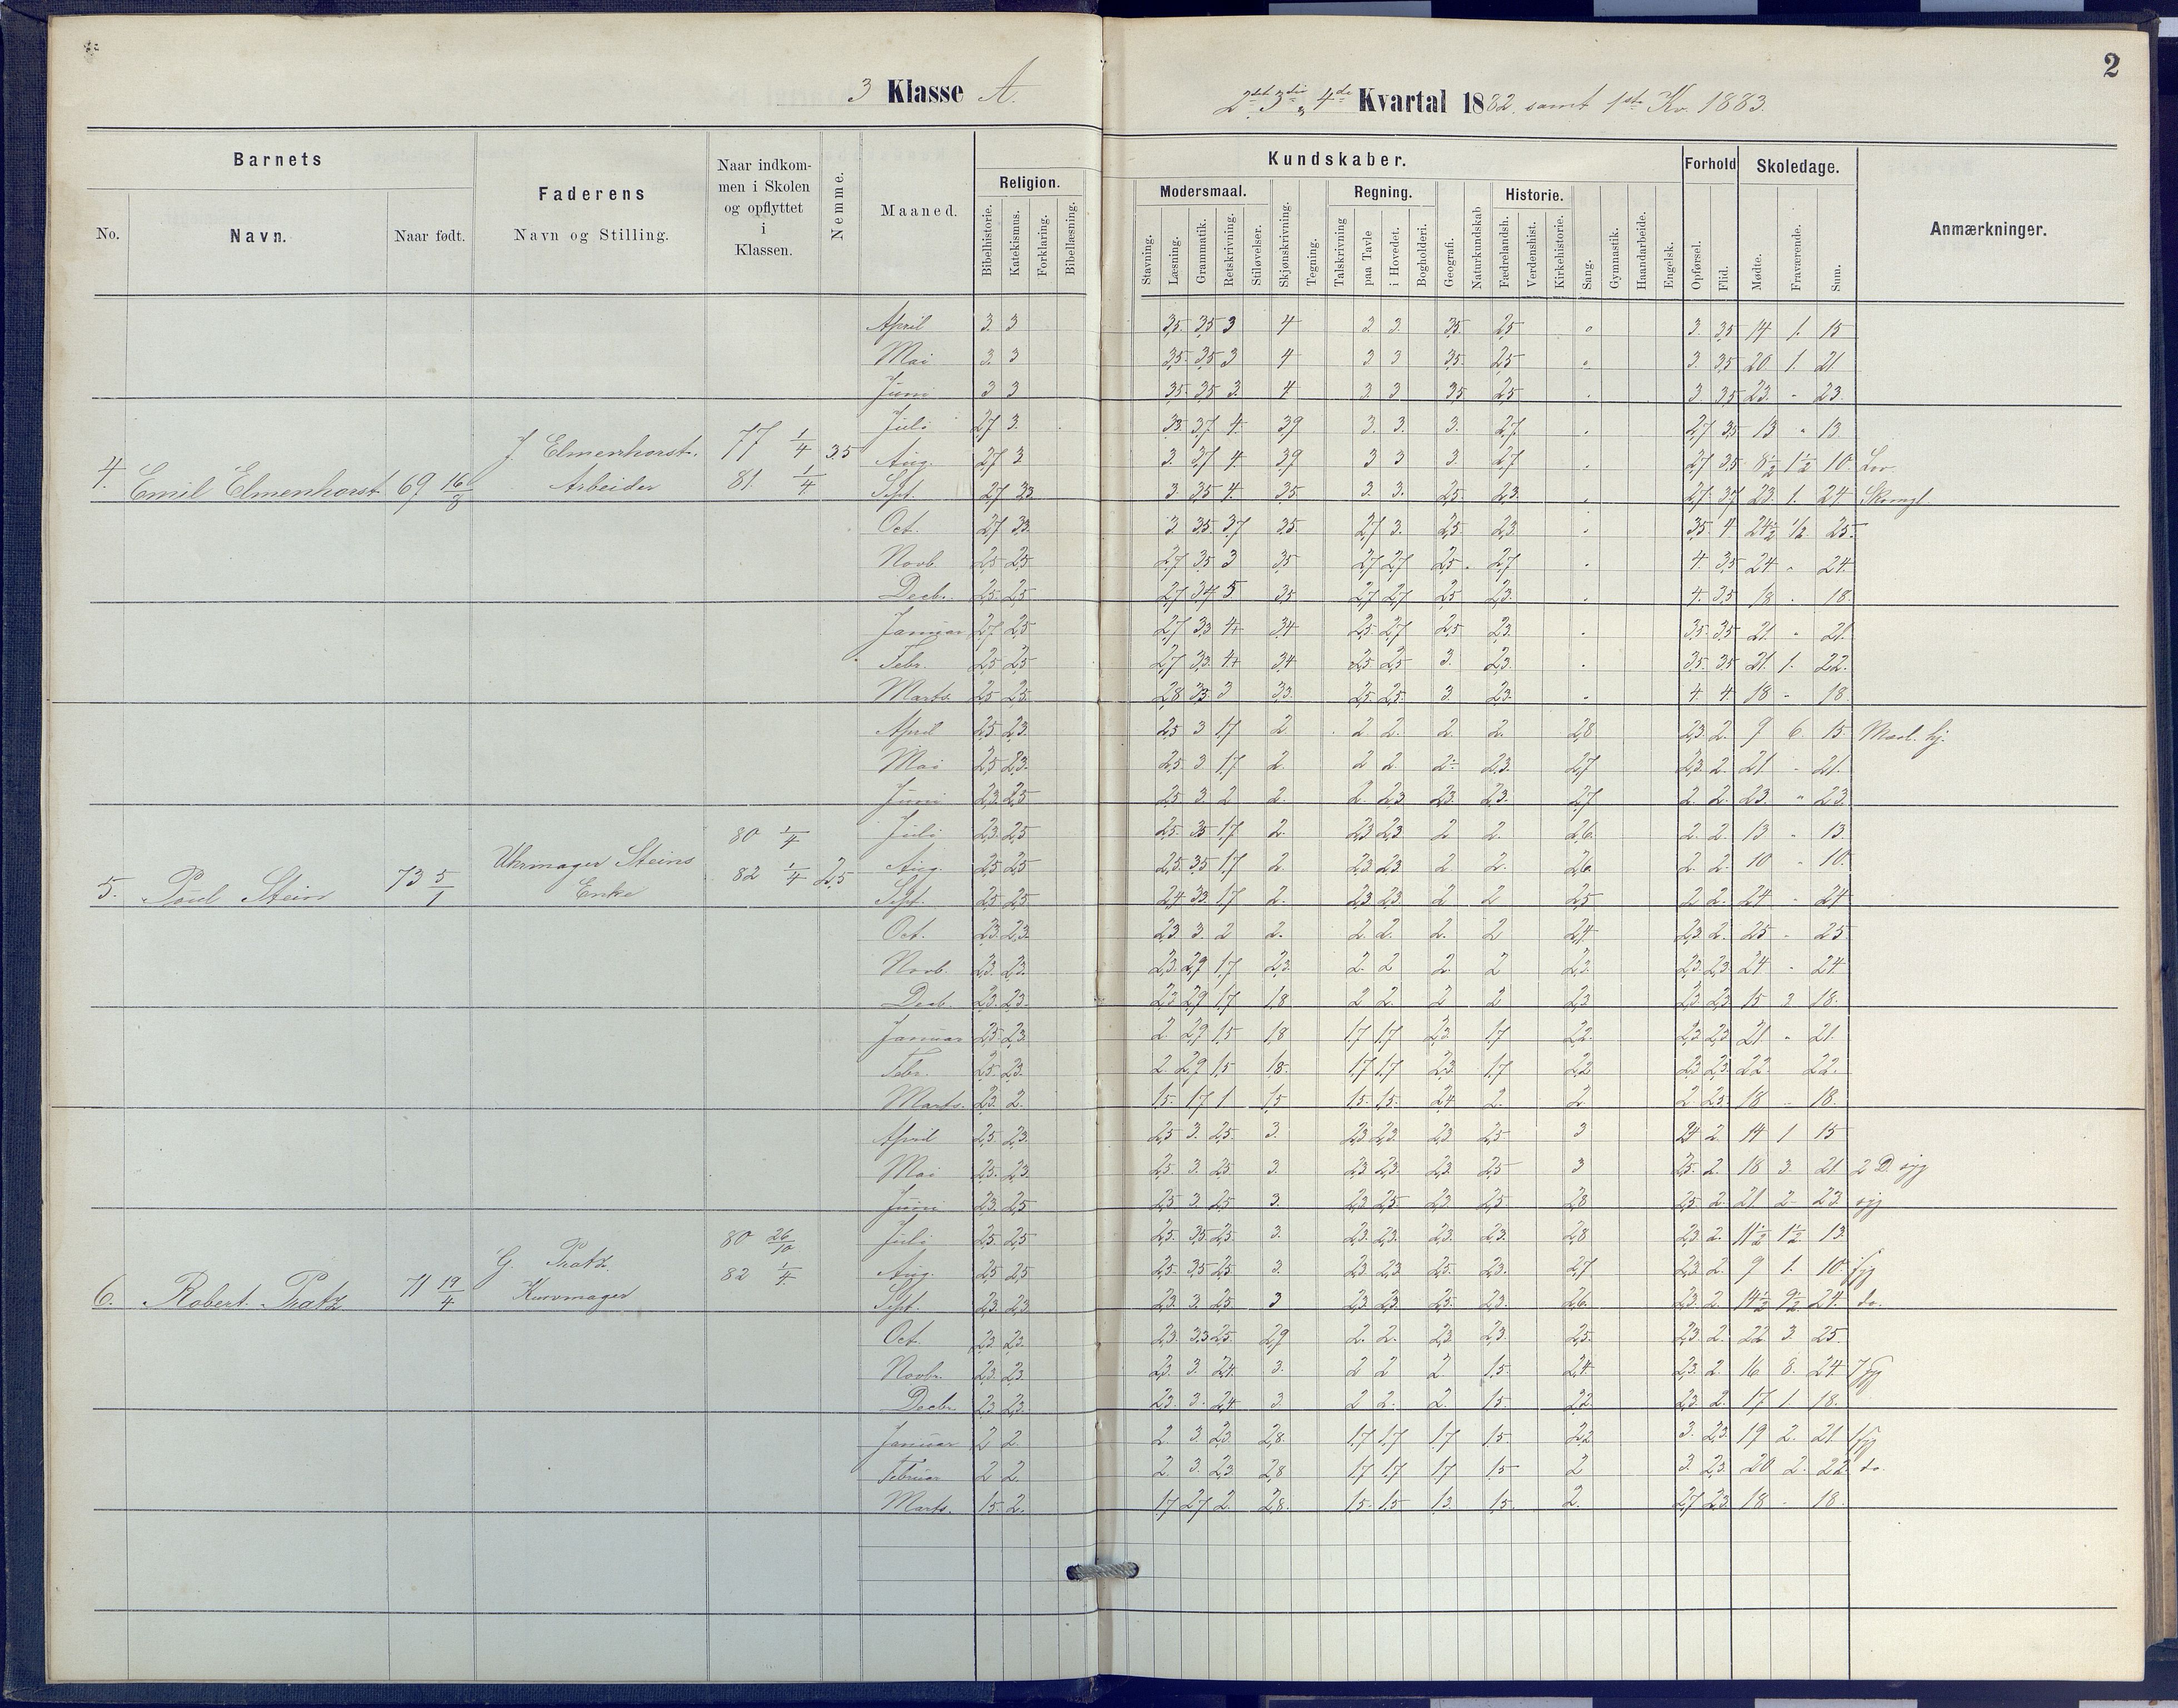 2
3 Klasse A.
2det 3die 4de Kvartal 1882. samt 1ste Kv. 1883.
Barnets
No.
Navn.
Naar født.
Faderens
Navn og Stilling.
Naar indkommen i Skolen og opflyttet i Klassen.
Nemme.
Maaned.
Religion.
Bibelhistorie.
Katekismus.
Forklaring.
Bibellæsning.
Kundskaber.
Modersmaal.
Stavning.
Læsning.
Grammatik.
Retskrivning.
Stiløvelser.
Skjønskrivning.
Tegning.
Regning.
Talskrivning
paa Tavle
i Hovedet.
Bogholderi.
Geografi.
Naturkundskab
Historie.
Fædrelandsh.
Verdenshist.
Kirkehistorie.
Sang.
Gymnastik.
Haandarbeide.
Engelsk.
Forhold
Opførsel.
Flid.
Skoledage.
Mødte.
Fraværende.
Sum.
Anmærkninger.
4. Emil Elmenhorst 69 16/8 J. Elmenhorst. Arbeider 77 1/4 81. 1/4 3,5
April 3. 3 3,5. 3,5 3 4 3 3. 3,5. 2,5 3. 3,5 14 1. 15
Mai 3. 3 3,5. 3,5 3 4 3 3 3,5. 2,5 3. 3,5 20 1. 21
Juni 3 3 3,5. 3,5 3. 4 3. 3 3,5 2,5 3 3,5 23. " 23.
Juli 2,7 3. 3,3. 3,7 4. 3,9 3. 3. 3. 2,7 2,7 3,5 13 " 13.
Aug. 2,7 3 3. 3,7 4. 3,9 3 3 3. 2,7 2,7 3,5 8 1/2 1 1/2 10. Lov.
Sept. 2,7 3,3 3. 3,5 4. 3,5. 3. 3. 2,5. 2,3. 2,7 3,7 23 1. 24
Oct. 2,7 3,3. 3 3,5. 3,7 3,5. 2,7 3. 2,5. 2,3. 3,5 4 24 1/2 1/2 25.
Novb. 2,5 2,5 2,7 3,5 3 3,5 2,7 2,7 2,5. 2,7 4. 3,5 24 " 24.
Decbr. 2,5. 2,5 2,7 3,4 3 3,5 2,7 2,7 2,5 2,3. 4. 3,5 18 " 18.
Januar 2,7 2,5 2,7 3,3 4 3,4 2,5. 2,7 2,5 2,3. 3,5. 3,5 21. " 21.
Febr. 2,5 2,5 2,7 3,3. 4 3,4 2,5 2,5 3. 2,3. 3,5. 3,5 21. 1. 22.
Marts. 2,5 2,5 2,8 3,3 3 3,3. 2,5. 2,5. 3. 2,3. 4. 4. 18 " 18.
5. Poul Stein 73 5/1 Uhrmager Steins Enke 80 1/4 82 1/4 2,5
April 2,5. 2,3. 2,5 3 1,7 2. 2 2. 2. 2. 2,8 2,3. 2. 9 6. 15
Mai 2,5 2,3. 2,5. 3. 1,7 2. 2 2. 2 2,3. 2,7 2,3. 2. 21 " 21.
Juni 2,3. 2,5 2,5. 3. 2 2. 2. 2,3 2,3. 2,3. 2,7 2. 2. 23. " 23.
Juli 2,3. 2,5 2,5. 3,5 1,7 2. 2,3 2,3. 2 2. 2,6 2. 2. 13 " 13.
Aug. 2,5 2,5 2,5. 3,5 1,7 2. 2,3 2,3 2. 2. 2,6 2. 2. 10 " 10.
Sept. 2,5 2,5 2,4 3,3. 1,7 2. 2,3 2,3. 2 2 2,5 2 2. 24 " 24
Oct. 2,3. 2,3. 2,3 3. 2 2. 2. 2. 2. 2 2,4 2,3. 2. 25 " 25
Novb. 2,3. 2,3. 2,3. 2,9 1,7 2,3. 2. 2 2. 2 2,3. 2,3. 2,3 24 " 24.
Decb. 2,3. 2,3. 2,3 2,9 1,7 1,8 2 2. 2 2 2,3 2,3. 2,3. 15 3 18.
Januar 2,5. 2,3. 2. 2,9 1,5 1,8 1,7 1,7 2,3. 1,7 2,2. 2,3 2,3 21 " 21.
Febr. 2,5. 2,3. 2. 2,9 1,5 1,8. 1,7 1,7 2,3. 1,7 2,2 2,3 2,3. 22. 22.
Marts. 2,3. 2. 1,5. 1,7 1 1,5 1,5. 1,5. 2,4 2. 2 2 2,3. 18 " 18.
6. Robert Pratz 71 19/4 G. Pratz. Kurvmager 80 26/10 82 1/4
April 2,5 2,3. 2,5 3. 2,5. 3. 2,3 2,3. 2,3. 2,5 3 2,4 2. 14 1 15
Mai 2,5. 2,3. 2,5. 3. 2,5 3. 2,3 2,3. 2,3. 2,5 3 2,5. 2 18 3. 21. 2 D. syg
Juni 2,3. 2,5 2,5 3 2,5 3. 2,3 2,5 2,3. 2,5. 2,8 2,5. 2. 21. 2 23. syg
Juli 2,5. 2,5 2,5. 3,5. 2,5. 3. 2,3. 2,3. 2,3. 2,3. 2,8 2,3. 2. 11 1/2 1 1/2 13.
Aug. 2,5 2,5 2,5. 3,5 2,5 3. 2,3 2,3 2,5. 2,3. 2,7 2,3. 2. 9 1. 10. syg
Sept. 2,3. 2,3 2,3. 3. 2,5 3 2,3. 2,3. 2,5. 2,3. 2,6. 2,3. 2. 14 1/2 9 1/2 24. do.
Oct. 2,3. 2,3. 2,3. 3,3 2,5. 2,9 2. 2. 2,3 2,3. 2,5. 2,3. 2. 22 3. 25.
Novbr. 2,3. 2,3. 2,3. 3. 2,4. 3. 2 2 2. 1,5. 2,4. 2,3. 2. 16 8. 24. 7 syg
Decbr. 2,3. 2,3. 2,3. 3. 2,4 3. 2 2. 2. 1,5. 2,2. 2,3. 2. 17 1. 18.
Januar 2 2. 2. 3. 2,3. 2,8. 1,7 1,7 1,7 1,5. 2,2 3. 2,3. 19 2. 21. 1 syg
Februar 2 2. 2. 3. 2,3. 2,8 1,7 1,7 1,7 1,5 2 3. 2,3. 20 2. 22 do.
Marts. 1,5. 2. 1,7 2,7 2. 2,8. 1,5. 1,5 1,3. 1,5. 2. 2,7 2,3. 18 " 18.